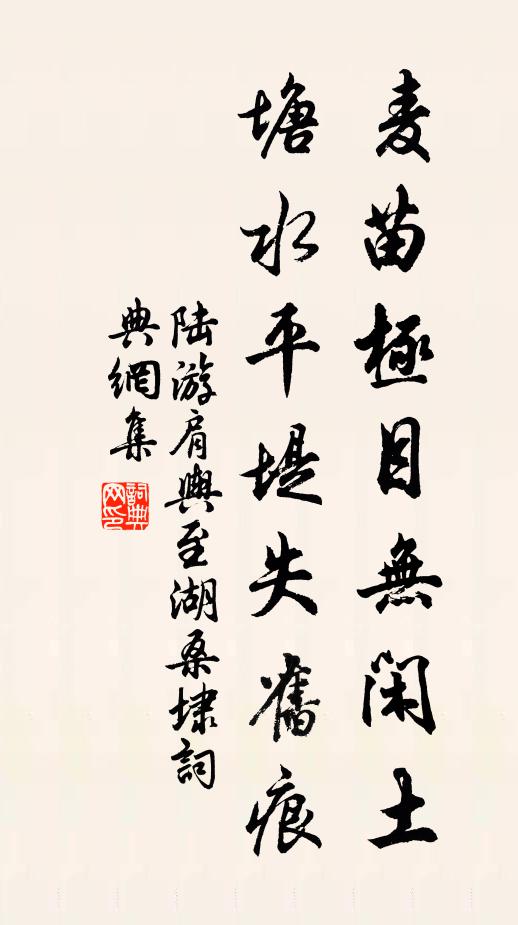 麦苗極目無閑土
塘水平堤失舊痕
陸游肩輿至湖桑埭詞
典網集
詞典網印